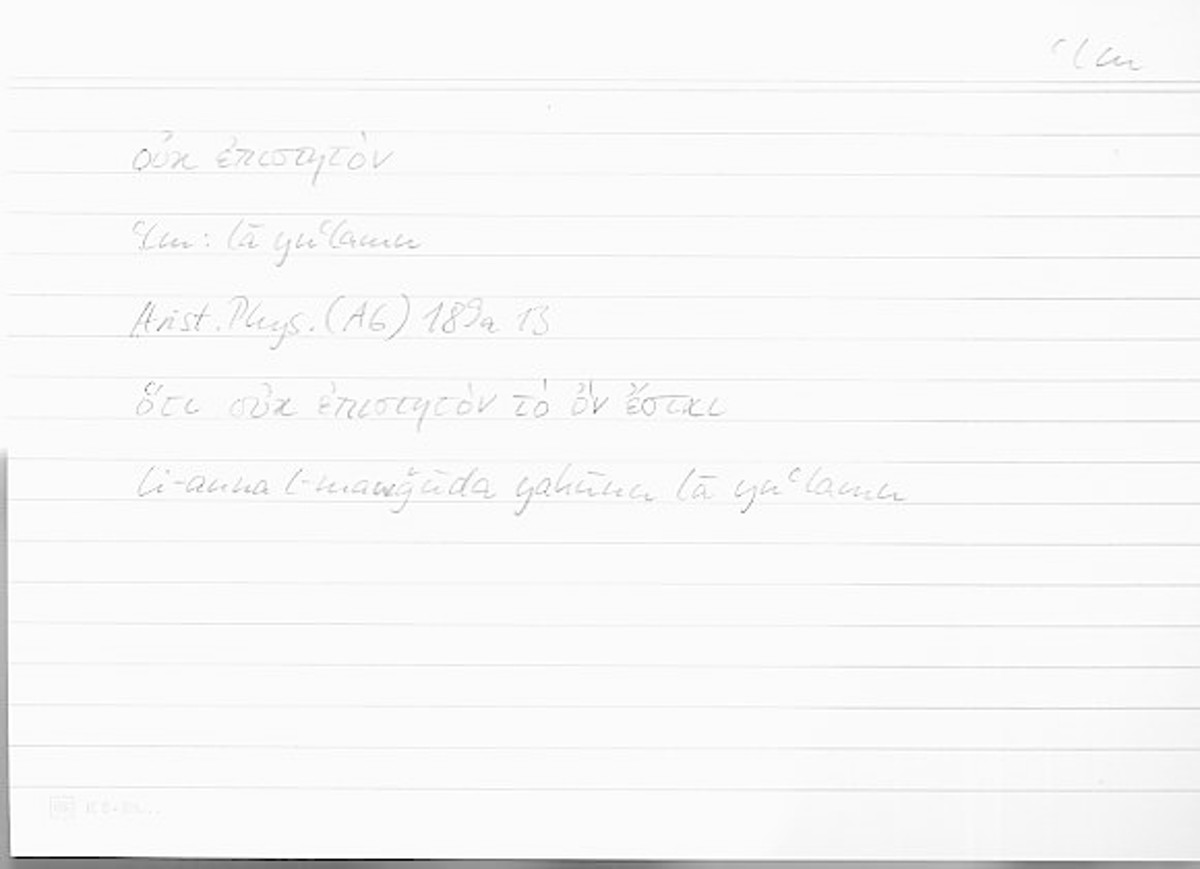 ʿlm
οὐκ ἐπιστητὸν
ʿlm: lā yuʿlamu
Arist. Phys. (A6) 189a 13
ὅτι οὐκ ἐπιστητὸν τὸ ὂν ἔσται
li-anna l-mawǧūda yakūnu lā yuʿlamu